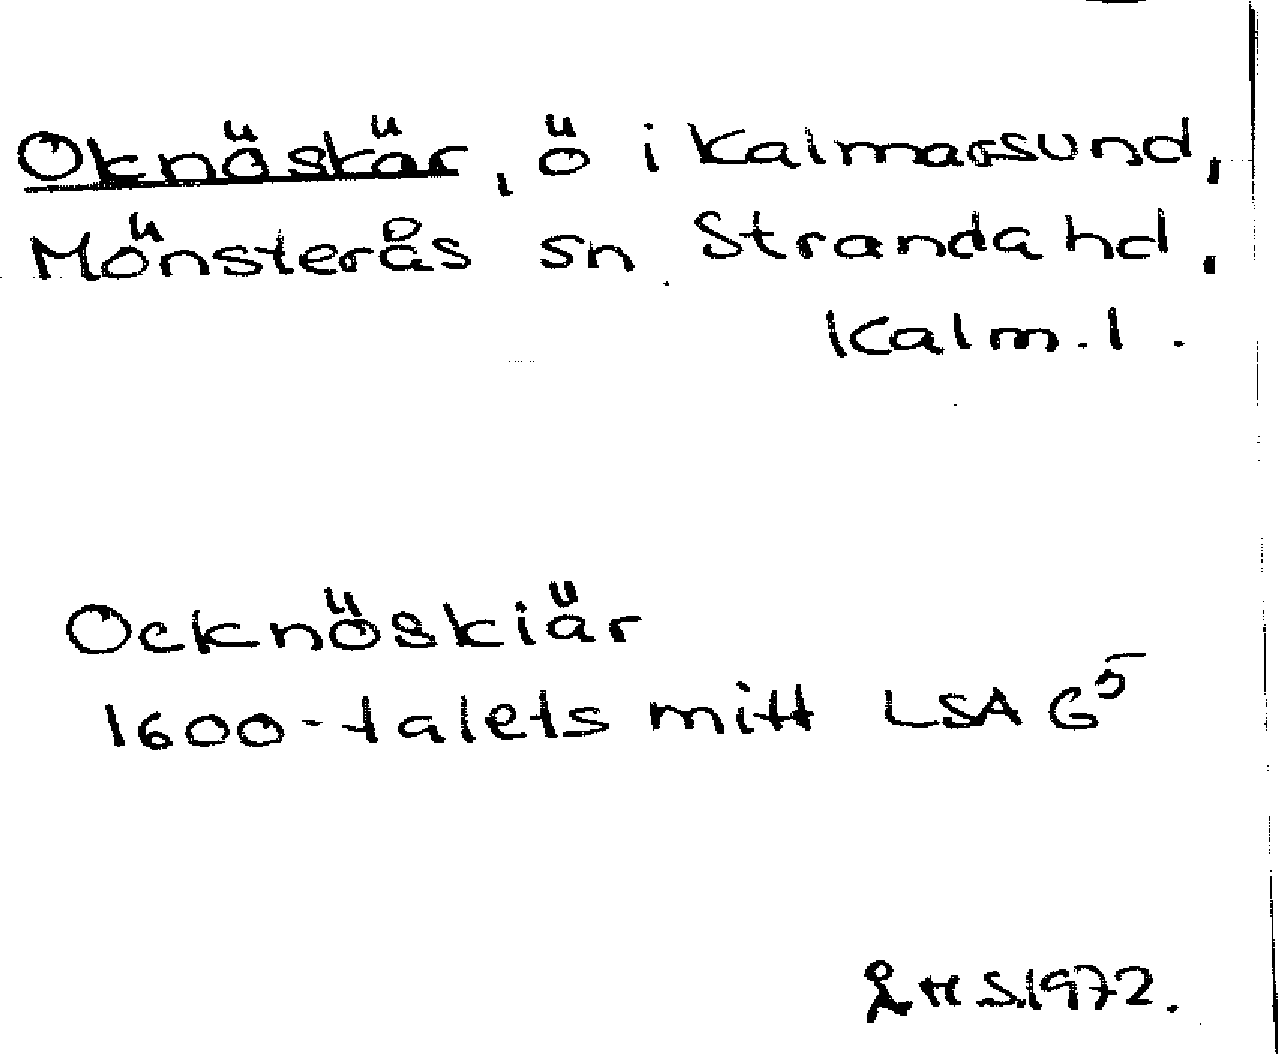 Oknöskär, ö i Kalmarsund,
Mönsterås sn. Stranda hd,
Kalm. l.
Ocknöskiär
1600-talets mitt LSA G⁵
ÅHS 1972.